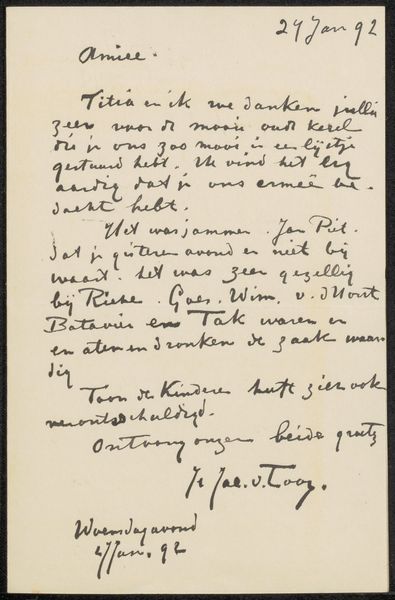 27 Jan 92
Amice.
Titia en ik we danken jullie
zeer voor de mooie oude kerel
die je ons zoo mooi in een lijstje
gestuurd hebt. Ik vind het erg
aardig dat je ons ermeê be-
dacht hebt.
Het was jammer. Jan Piet.
dat je gisteren avond er niet bij
waart. Het was zeer gezellig
bij Rieke. Goes. Wim. v. d Horst
Batavier en Tak waren er
en aten en dronken de zaak waar
dig
Toon de Kinderen heeft zich ook
verontschuldigd.
Ontvang onzer beide groets
Je Jac. v. Looy.
Woensdagavond
27 Jan. 92